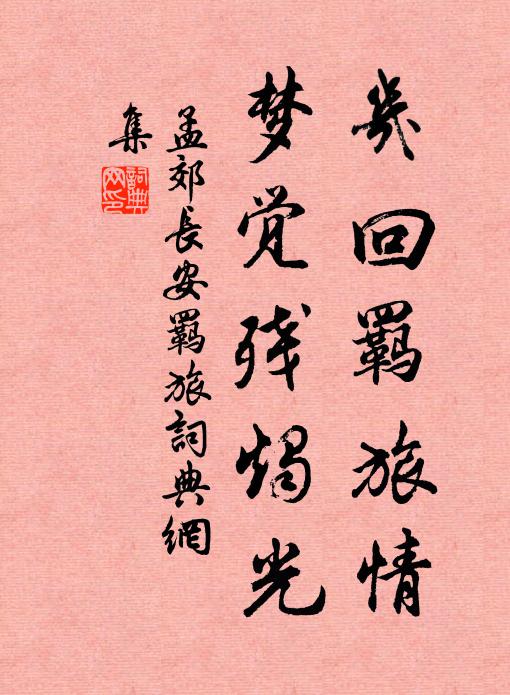 幾回羈旅情
梦觉残烛光
孟郊長安羈旅詞典網
集
詞典網印